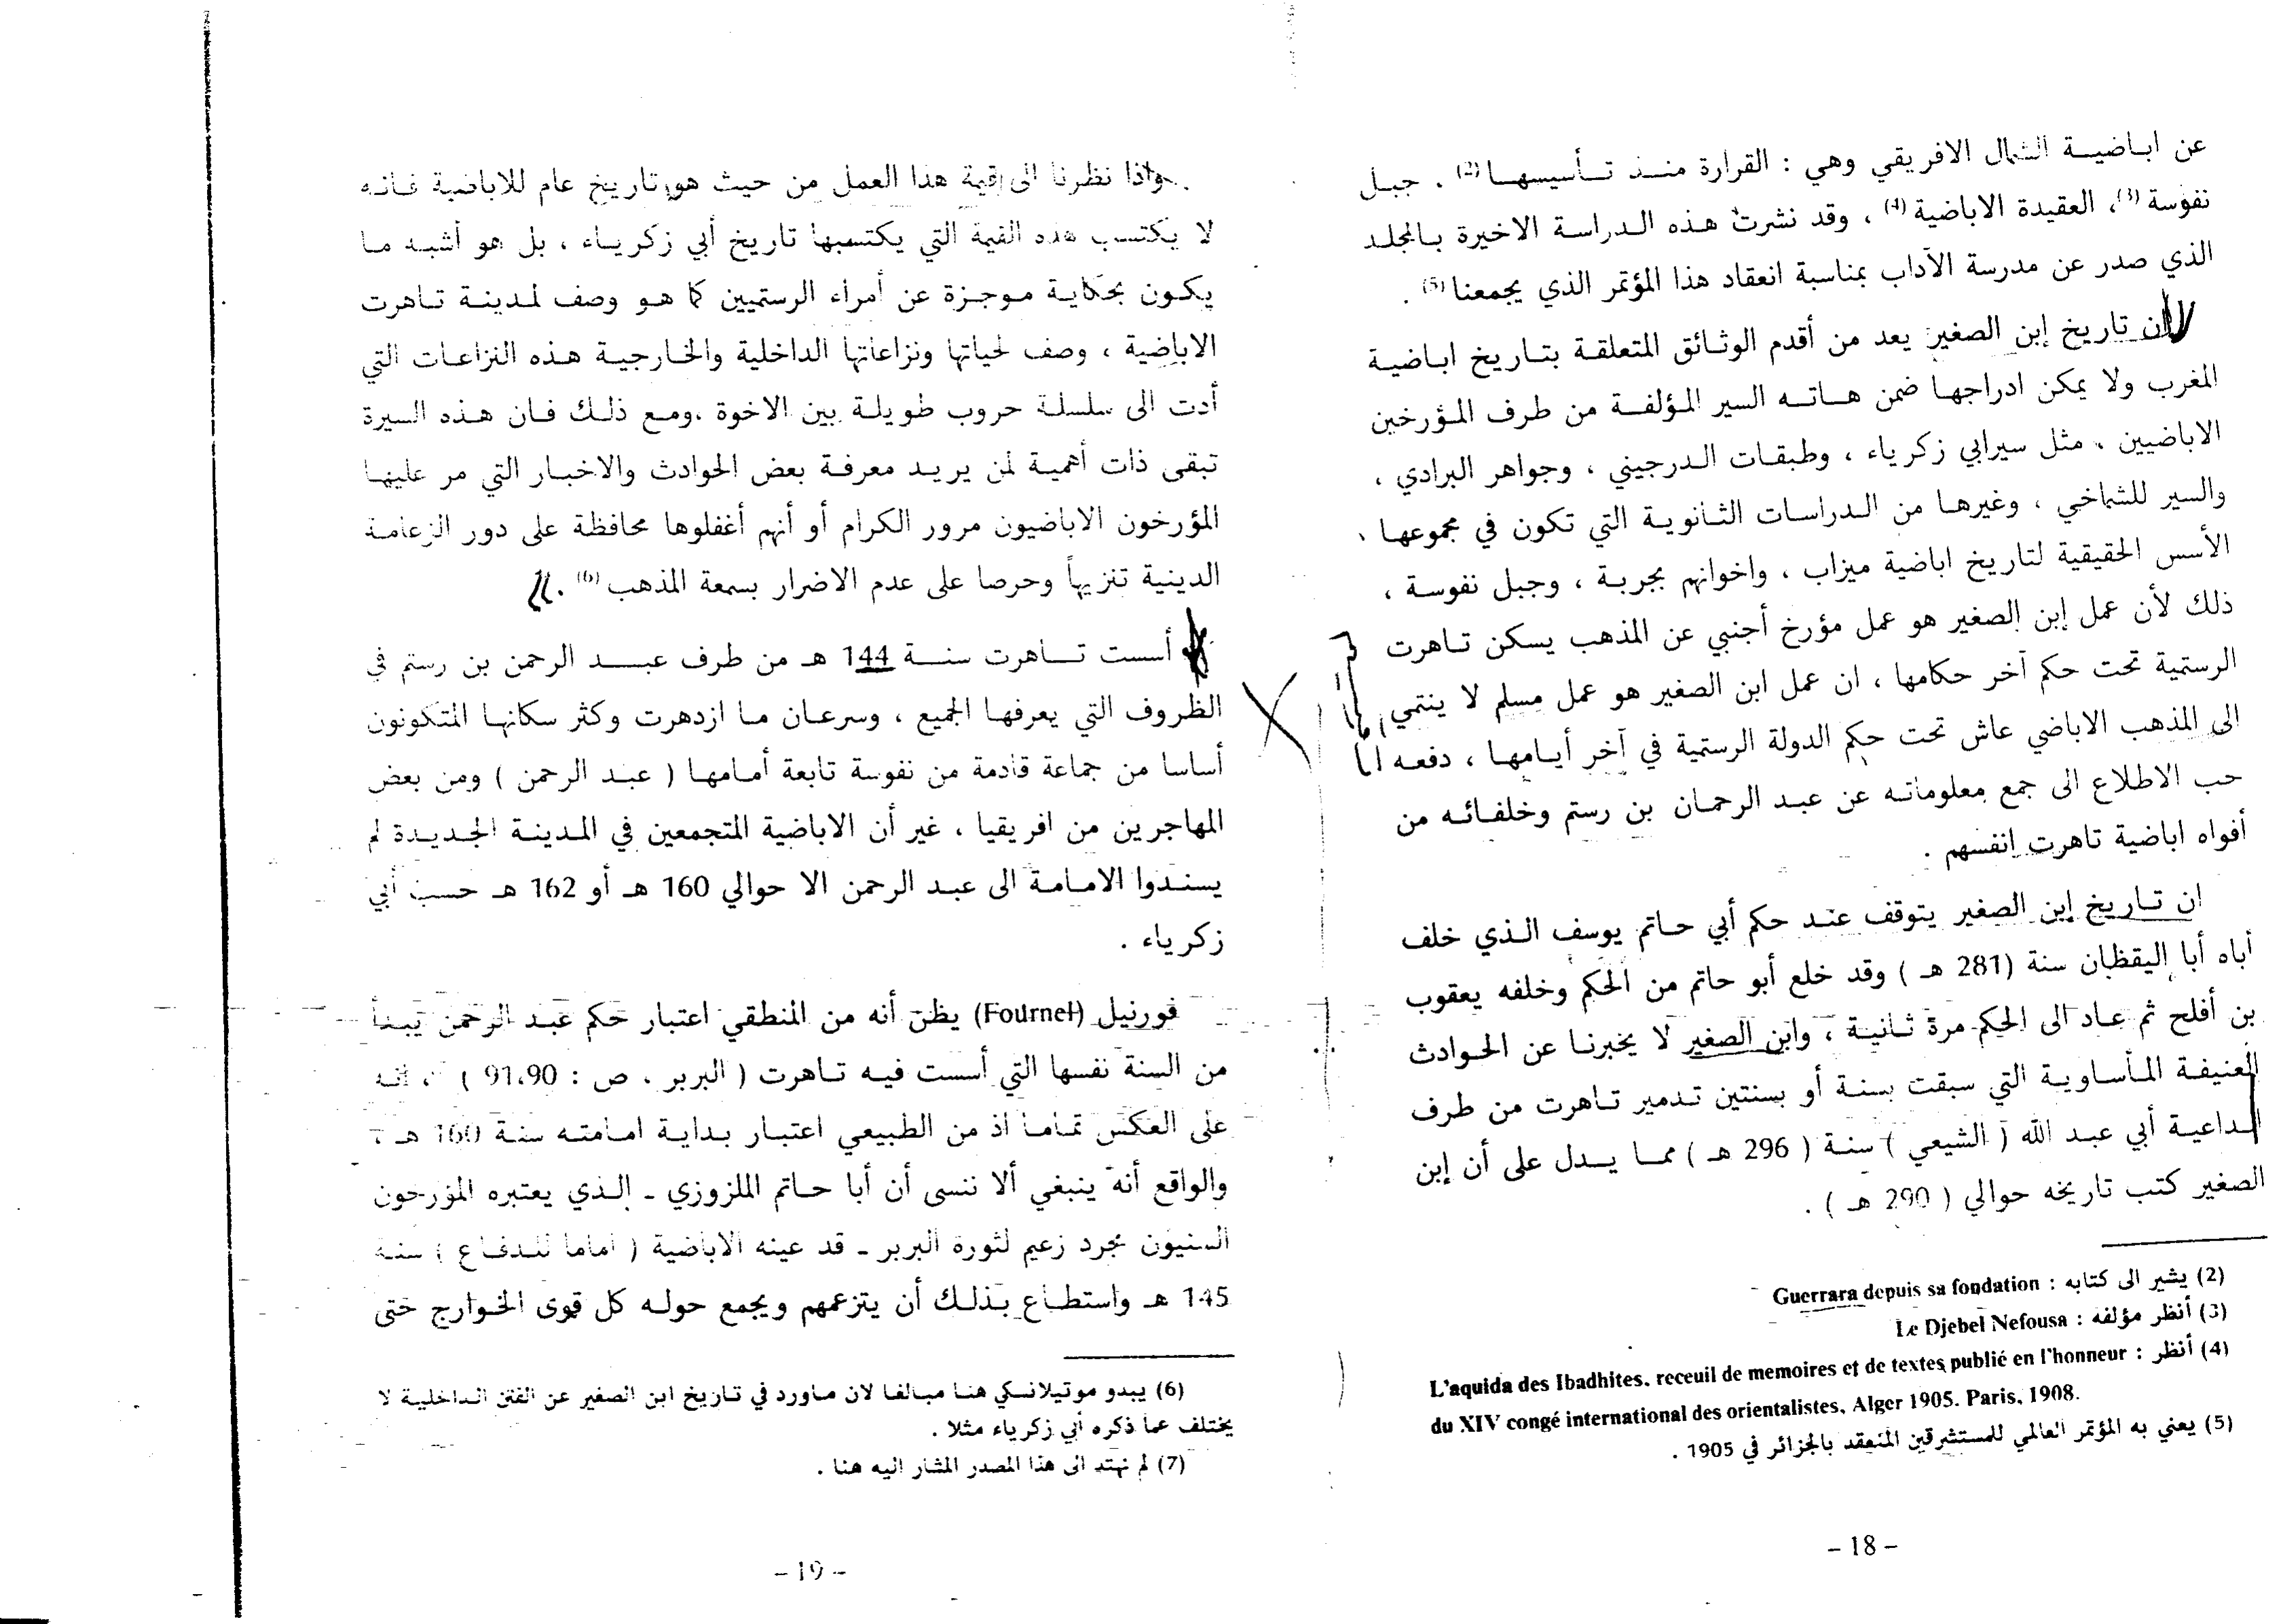 عن اباضية الشمال الافريقي وهي : القرارة منذ تأسيسها (2) ، جبل
نفوسة (3)، العقيدة الاباضية (4) ، وقد نشرت هذه الدراسة الاخيرة بالمجلد
الذي صدر عن مدرسة الآداب بمناسبة انعقاد هذا المؤتمر الذي يجمعنا (5) .
ان تاريخ إبن الصغير يعد من أقدم الوثائق المتعلقة بتاريخ اباضية
المغرب ولا يمكن ادراجها ضمن هاته السير المؤلفة من طرف المؤرخين
الاباضيين ، مثل سيرابي زكرياء ، وطبقات الدرجيني ، وجواهر البرادي ،
والسير للشماخي ، وغيرها من الدراسات الثانوية التي تكون في مجموعها ،
الأسس الحقيقية لتاريخ اباضية ميزاب ، واخوانهم بجربة ، وجبل نفوسة ،
ذلك لأن عمل إبن الصغير هو عمل مؤرخ أجنبي عن المذهب يسكن تاهرت
الرستمية تحت حكم آخر حكامها ، ان عمل ابن الصغير هو عمل مسلم لا ينتمي
الى المذهب الاباضي عاش تحت حكم الدولة الرستمية في آخر أيامها ، دفعه
حب الاطلاع الى جمع معلوماته عن عبد الرحمان بن رستم وخلفائه من
أفواه اباضية تاهرت انفسهم .
ان تاريخ إبن الصغير يتوقف عند حكم أبي حاتم يوسف الذي خلف
أباه أبا اليقظان سنة (281 هـ ) وقد خلع أبو حاتم من الحكم وخلفه يعقوب
بن أفلح ثم عاد الى الحكم مرة ثانية ، وابن الصغير لا يخبرنا عن الحوادث
العنيفة المأساوية التي سبقت بسنة أو بسنتين تدمير تاهرت من طرف
الداعية أبي عبد الله ( الشيعي ) سنة ( 296 هـ ) مما يدل على أن إبن
الصغير كتب تاريخه حوالي ( 290 هـ ) .
(2) يشير الى كتابه : Guerrara depuis sa fondation
(3) أنظر مؤلفه : Le Djebel Nefousa
(4) أنظر :
L'aquida des Ibadhites. receuil de memoires et de textes publié en l'honneur
du XIV congé international des orientalistes, Alger 1905. Paris, 1908.
(5) يعني به المؤتمر العالمي للمستشرقين المنعقد بالجزائر في 1905 .
– 18 –
واذا نظرنا الى قيمة هذا العمل من حيث هو تاريخ عام للاباضية فانه
لا يكتسب هذه القيمة التي يكتسبها تاريخ أبي زكرياء ، بل هو أشبه ما
يكون بحكاية موجزة عن أمراء الرستميين كما هو وصف لمدينة تاهرت
الاباضية ، وصف لحياتها ونزاعاتها الداخلية والخارجية هذه النزاعات التي
أدت الى سلسلة حروب طويلة بين الاخوة ،ومع ذلك فان هذه السيرة
تبقى ذات أهمية لمن يريد معرفة بعض الحوادث والاخبار التي مر عليها
المؤرخون الاباضيون مرور الكرام أو أنهم أغفلوها محافظة على دور الزعامة
الدينية تنزيهاً وحرصا على عدم الاضرار بسمعة المذهب (6) .
أسست تاهرت سنة 144 هـ من طرف عبد الرحمن بن رستم في
الظروف التي يعرفها الجميع ، وسرعان ما ازدهرت وكثر سكانها المتكونون
أساسا من جماعة قادمة من نفوسة تابعة أمامها ( عبد الرحمن ) ومن بعض
المهاجرين من افريقيا ، غير أن الاباضية المتجمعين في المدينة الجديدة لم
يسندوا الامامة الى عبد الرحمن الا حوالي 160 هـ أو 162 هـ حسب أبي
زكرياء .
فورنيل (Fournel) يظن أنه من المنطقي اعتبار حكم عبد الرحمن يبدأ
من السنة نفسها التي أسست فيه تاهرت ( البربر ، ص : 91،90 ) ، انه
على العكس تماما اذ من الطبيعي اعتبار بداية امامته سنة 160 هـ ،
والواقع أنه ينبغي ألا ننسى أن أبا حاتم الملزوزي ـ الذي يعتبره المؤرخون
السنيون مجرد زعيم لثورة البربر ـ قد عينه الاباضية ( اماما للدفاع ) سنة
145 هـ واستطاع بذلك أن يتزعمهم ويجمع حوله كل قوى الخوارج حتى
(6) يبدو موتيلانسكي هنا مبالغا لان ماورد في تاريخ ابن الصغير عن الفتن الداخلية لا
يختلف عما ذكره أبي زكرياء مثلا .
(7) لم نهتد الى هذا المصدر المشار اليه هنا .
– 19 –